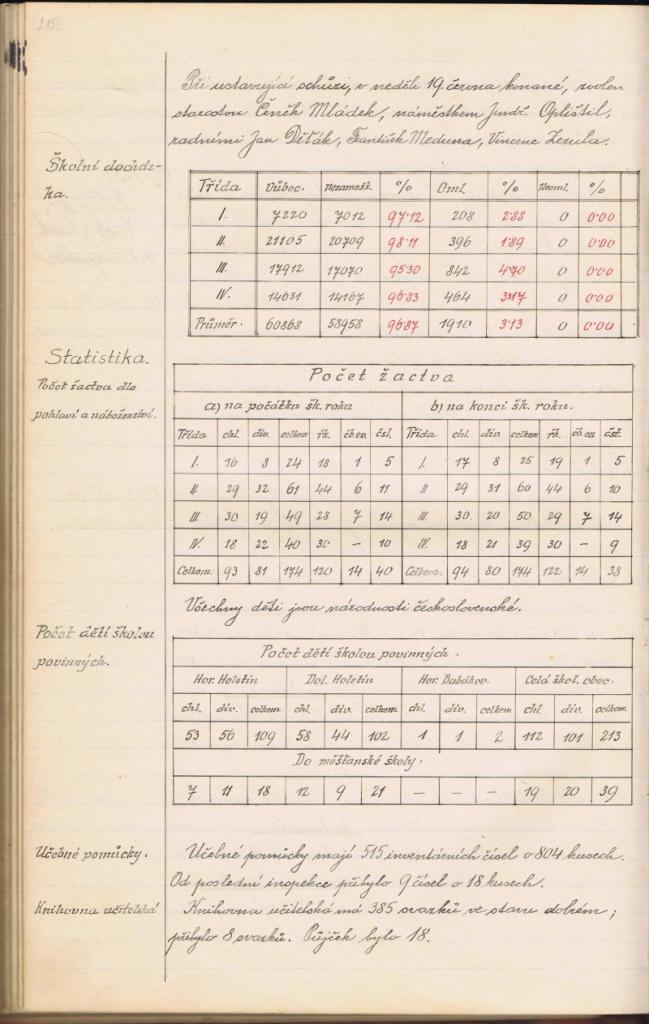 215.
Při ustavující schůzi, v neděli 19. června konané, zvolen
starostou Čeněk Mládek, náměstkem Jindř. Oplištil,
radními Jan Děťák, František Meduna, Vincenc Zezula.
Školní docház-
ka.
Třída Vůbec. Nezamešk. % Oml. % Neoml. %
I. 7220 7012 97·12 208 2·88 0 0·00
II. 21105 20709 98·11 396 1·89 0 0·00
III. 17912 17070 95·30 842 4·70 0 0·00
IV. 14631 14167 96·83 464 3·17 0 0·00
Průměr. 60868 58958 96·87 1910 3·13 0 0·00
Statistika.
Počet žactva dle
pohlaví a náboženství.
Počet žactva
a) na počátku šk. roku b) na konci šk. roku.
Třída chl. div. celkem řk. čb.ev. čsl. Třída chl. div. celkem řk. čb.ev. čsl.
I. 16 8 24 18 1 5 I. 17 8 25 19 1 5
II. 29 32 61 44 6 11 II. 29 31 60 44 6 10
III. 30 19 49 28 7 14 III. 30 20 50 29 7 14
IV. 18 22 40 30 – 10 IV. 18 21 39 30 – 9
Celkem: 93 81 174 120 14 40 Celkem: 94 80 174 122 14 38
Všechny děti jsou národnosti československé.
Počet dětí školou
povinných.
Počet dětí školou povinných.
Hor. Holetín Dol. Holetín Hor. Babákov. Celá škol. obec.
chl. div. celkem chl. div. celkem chl. div. celkem chl. div. celkem
53 56 109 58 44 102 1 1 2 112 101 213
Do měšťanské školy:
7 11 18 12 9 21 – – – 19 20 39
Učebné pomůcky.
Učebné pomůcky mají 515 inventárních čísel o 804 kusech.
Od poslední inspekce přibylo 9 čísel o 18 kusech.
Knihovna učitelská
Knihovna učitelská má 385 svazků ve stavu dobrém;
přibylo 8 svazků. Půjček bylo 18.